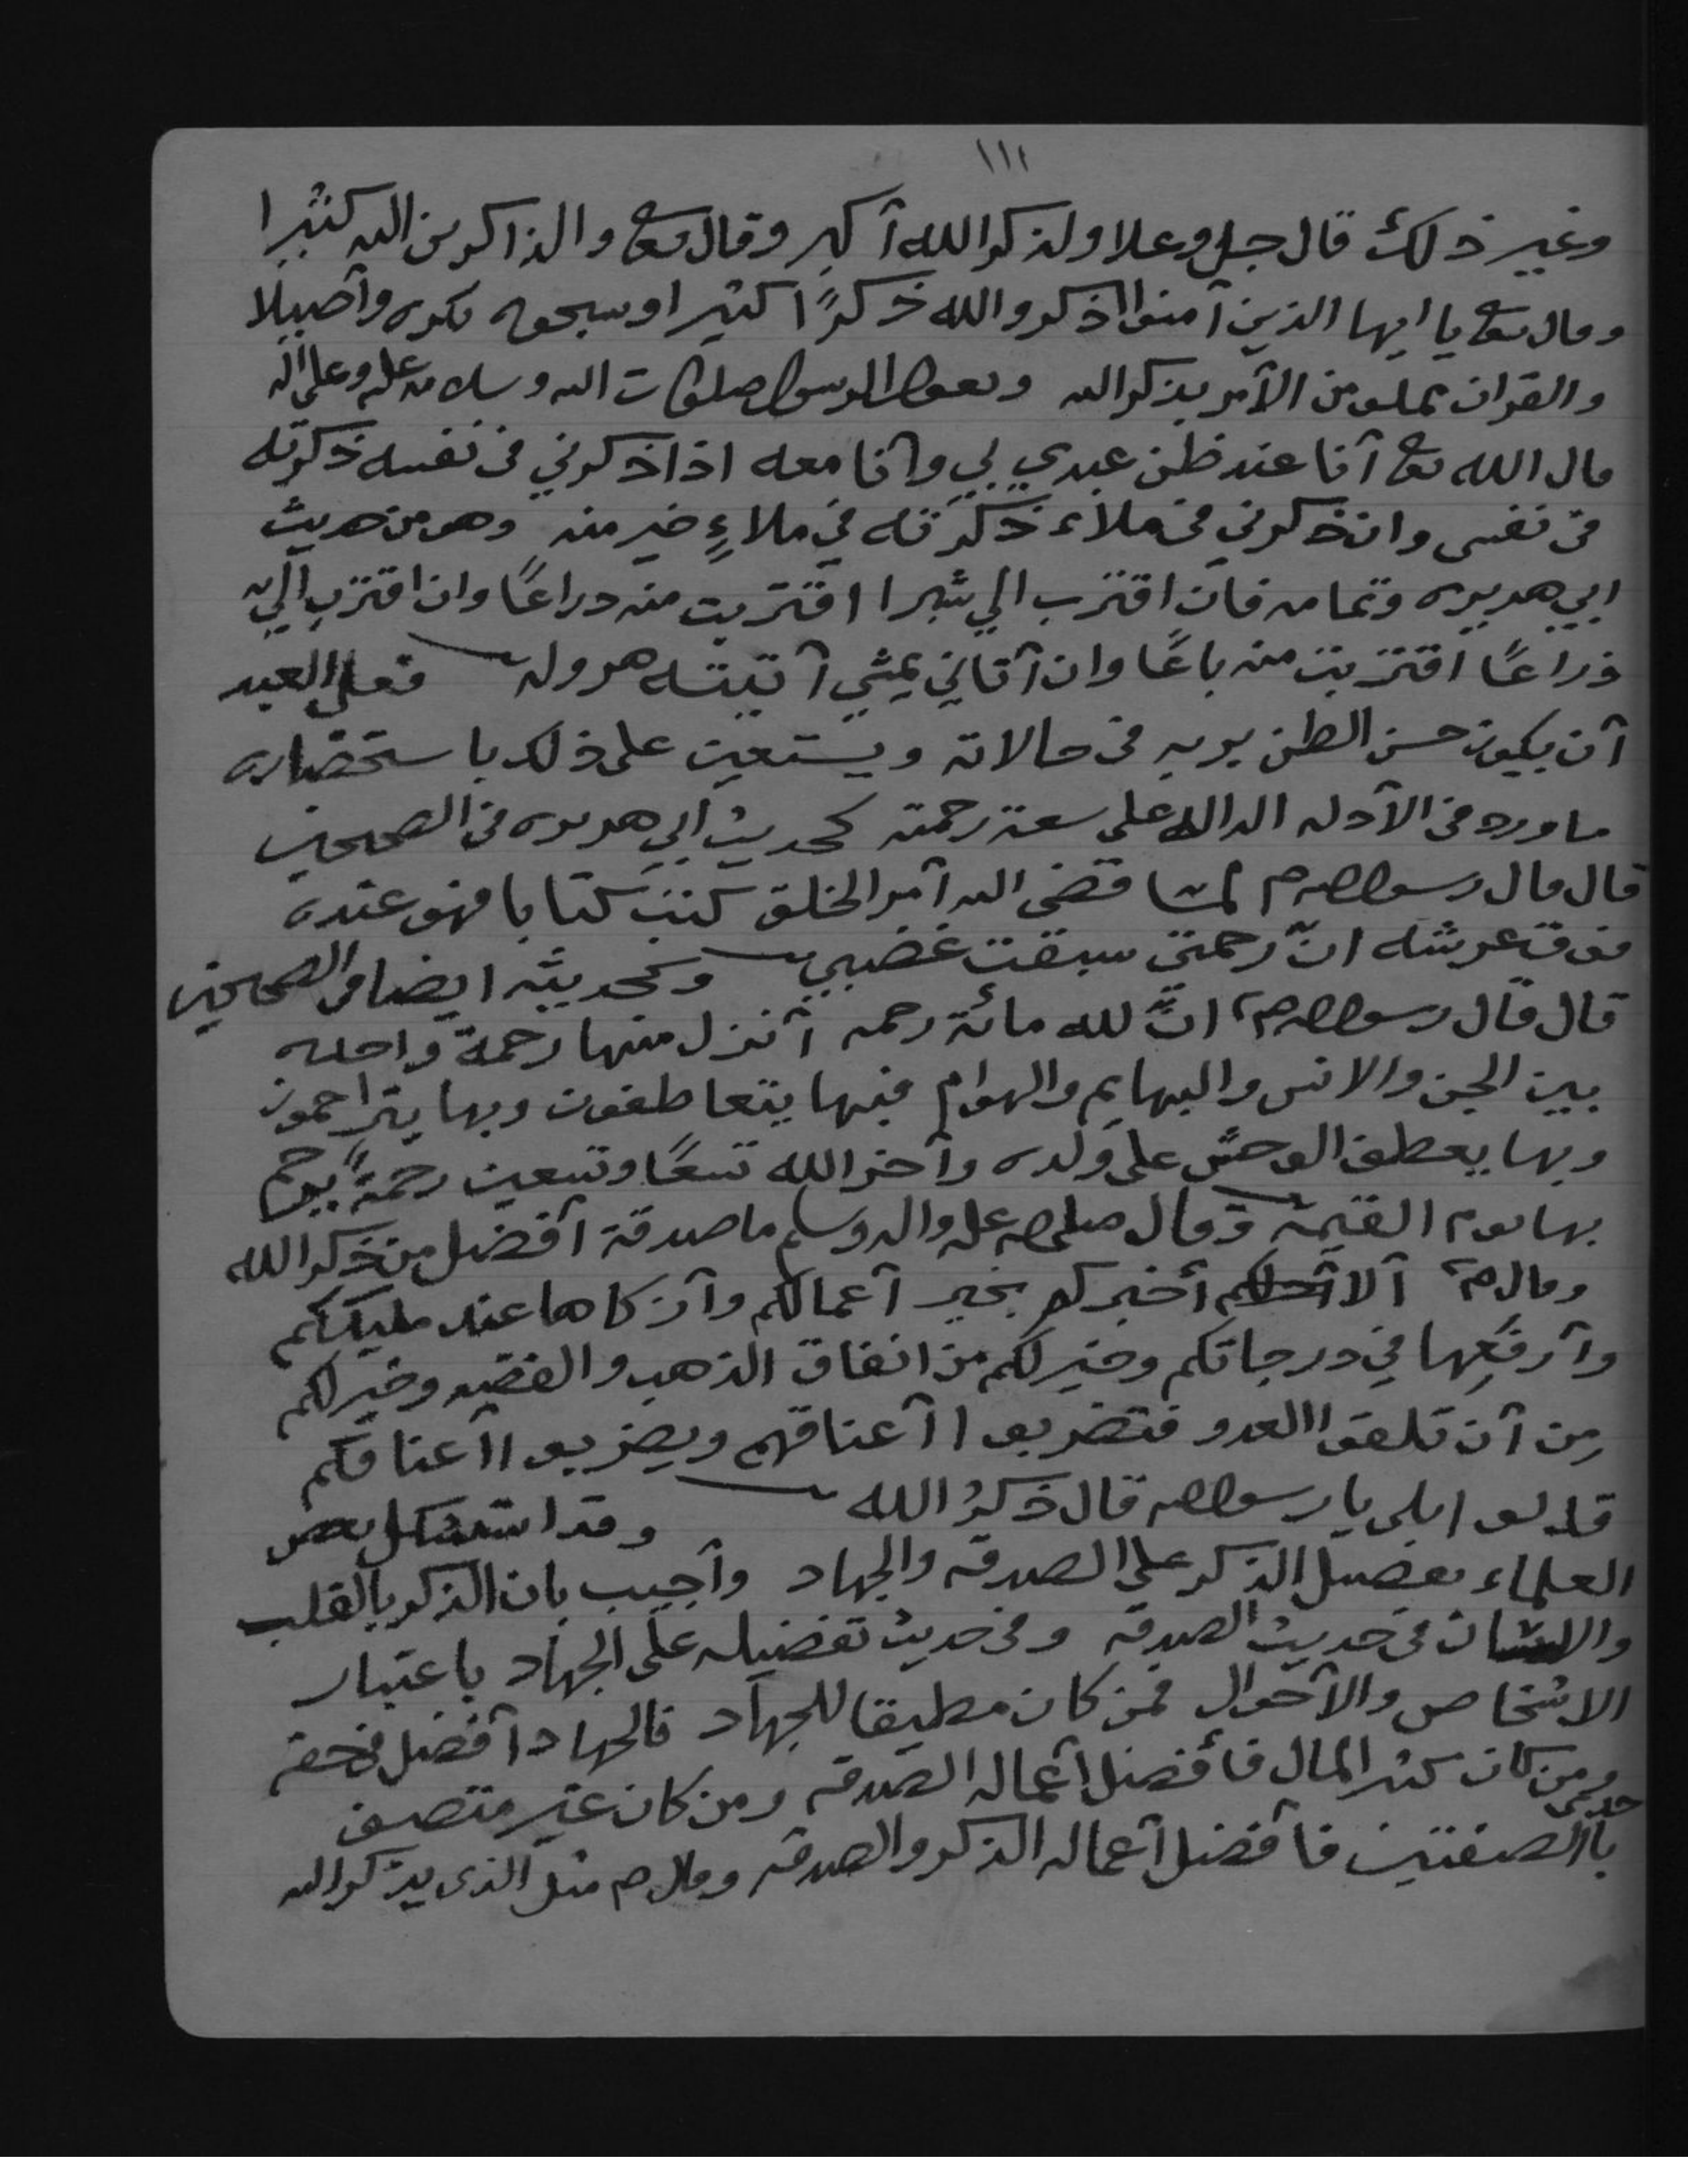 ١١١
وغير ذلك قال جل وعلا ولذكر الله أكبر وقال تعا والذاكرين الله كثيرا
وقال تعا يا ايها الذين آمنوا اذكروا الله ذكرًا كثيرا وسبحوه بكره وأصيلا
والقران مملو من الأمر بذكر الله ويقول الرسول صلوات الله وسلامه عليه وعلى اله
قال الله تعا أنا عند ظن عبدي بي وأنا معه اذا ذكرني في نفسه ذكرته
في نفسي وان ذكرني في ملاء ذكرته في ملاءٍ خير منه وهو من حديث
ابي هريره وتمامه فان اقترب الي شبرا اقتربت منه دراعًا وان اقترب الي
ذراعًا اقتربت منه باعًا وان أتاني يمشي أتيته هروله فعلى العبد
أن يكون حسن الظن بربه في حالاته ويستعين على ذلك باستحضاره
ما ورد في الأدله الداله على سعة رحمته كحديث ابي هريره في الصحيحين
قال قال رسول الله م لما قضى الله أمر الخلق كتب كتابا فهو عنده
فوق عرشه انّ رحمتي سبقت غضبي وكحديثه ايضا في الصحيحين
قال قال رسول الله م انّ لله مائة رحمه أنزل منها رحمة واحده
بين الجن والانس والبهايم والهوام فبها يتعاطفون وبها يتراحمون
وبها يعطف الوحش على ولده وأخر الله تسعًا وتسعين رحمةً يرحم
بها يوم القيمه وقال صلى الله عليه واله وسلم ما صدقة أفضل من ذكر الله
وقال م ألا أخبركم بخير أعمالكم وأزكاها عند مليككم
وأرفَعِها في درجاتكم وخير لكم من انفاق الذهب والفضه وخير لكم
مِن أن تلقوا العدو فتضربوا أعناقهم ويضربوا أعناقكم
قالوا بلى يا رسول الله قال ذكرُ الله وقد استشكل بعض
العلماء تفضيل الذكر على الصدقه والجهاد وأجيب بان الذكر بالقلب
واللسان في حديث الصدقه وفي حديث تفضيله على الجهاد باعتبار
الاشخاص والأحوال فمن كان مطيقا للجهاد فالجهاد أفضل في حقه
ومن كان كثير المال فأفضل أعماله الصدقه ومن كان غير متصف
باالصفتين فأفضل أعماله الذكر والصدقه وقال م مثل الذي يذكر الله